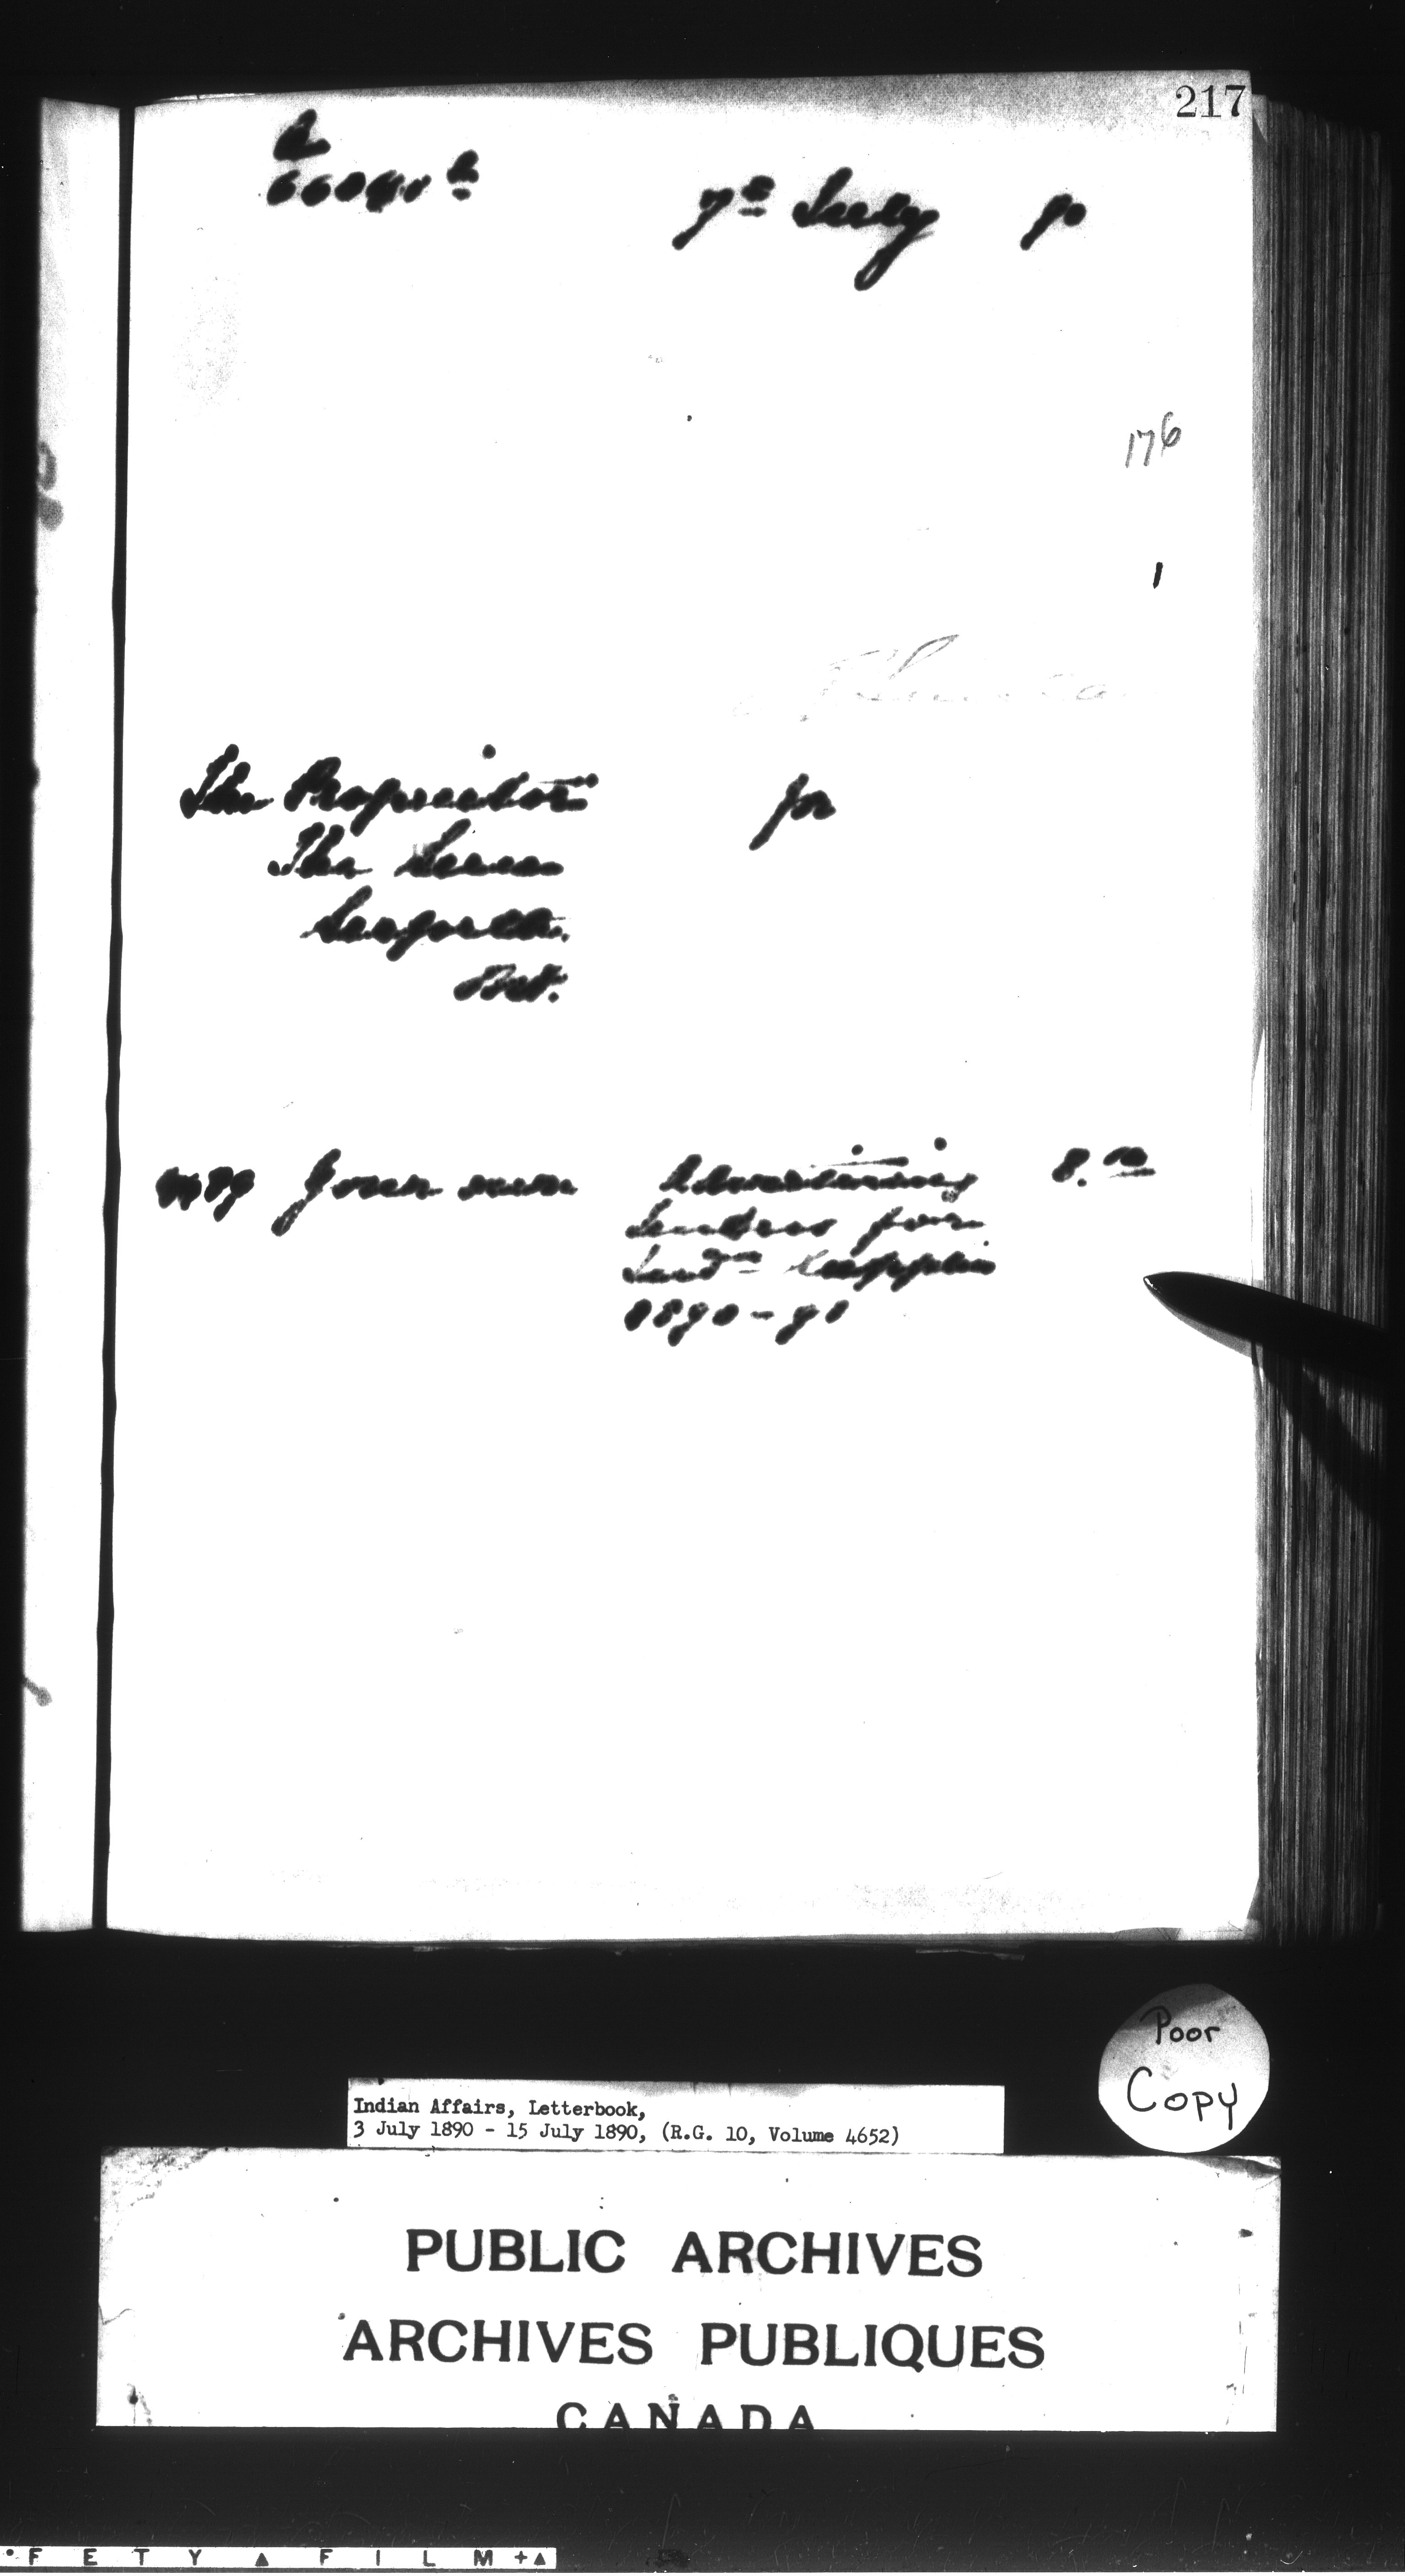 217
7th July 90
176
The Proprietors
for
The
Ont.
Your own Advertising 8.00
Tenders for
Ind'n Supplies
1890-91
Poor
Copy
Indian Affairs, Letterbook,
3 July 1890 - 15 July 1890, (R.G. 10, Volume 4652)
PUBLIC ARCHIVES
ARCHIVES PUBLIQUES
CANADA
FETY FILM